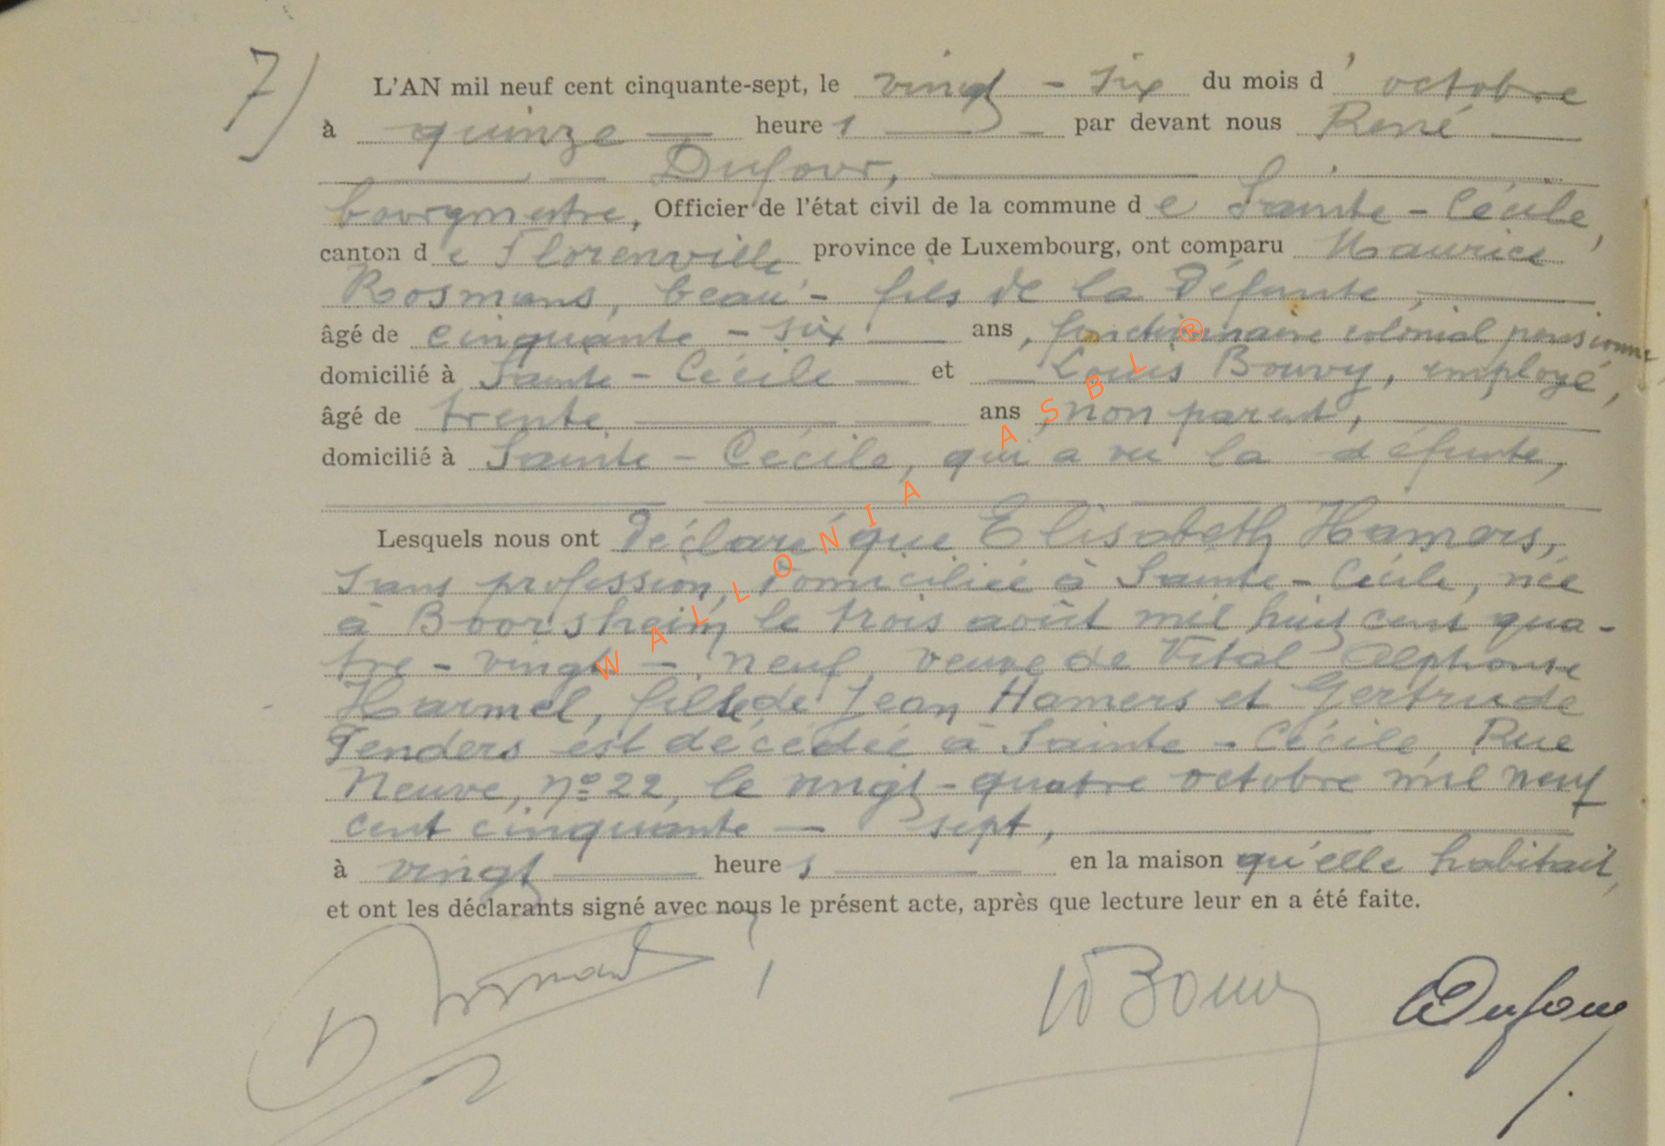 7)
L'AN mil neuf cent cinquante-sept, le vingt - six du mois d'octobre
à quinze heures par devant nous René
Dufour,
bourgmestre, Officier de l'état civil de la commune de Sainte - Cécile,
canton de Florenville province de Luxembourg, ont comparu Maurice
Rosmans, beau - fils de la défunte,
âgé de cinquante - six ans, fonctionnaire colonial pensionné
domicilié à Sainte - Cécile et Louis Bouvy, employé,
âgé de trente ans, non parent,
domicilié à Sainte - Cécile, qui a vu la défunte,
Lesquels nous ont déclaré que Elisabeth Hamers,
sans profession, domiciliée à Sainte - Cécile, née
à Boorsheim, le trois août mil huit cent qua-
tre - vingt - neuf, veuve de Vital Alphonse
Harmel, fille de Jean Hamers et Gertrude
Tenders est décédée à Sainte - Cécile, Rue
Neuve, nº 22, le vingt - quatre octobre mil neuf
cent cinquante - sept,
à vingt heures en la maison qu'elle habitait,
et ont les déclarants signé avec nous le présent acte, après que lecture leur en a été faite.
Bouvy Dufour
WALLONIA ASBL ®